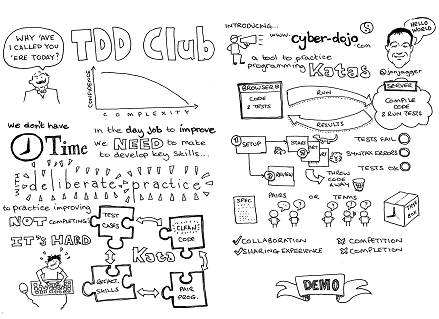 WHY 'AVE
I CALLED YOU
'ERE TODAY?
TDD Club
CONFIDENCE
COMPLEXITY
We don't have
Time
in the day job to improve
We NEED to make
to develop key skills...
WITH deliberate practice
to practice improving
NOT COMPLETING!
IT'S HARD
TEST
CASES
CLEAN
CODE
Kata
REFACT.
SKILLS
PAIR
PROG.
INTRODUCING...
www.cyber-dojo.com
a tool to practice
programming Katas
HELLO
WORLD
@jonjagger
BROWSER
CODE
& TESTS
RUN
RESULTS
SERVER
COMPILE
CODE
& RUN TESTS
SETUP
START
TESTS FAIL
SYNTAX ERRORS
TESTS OK
THROW
CODE
AWAY
SPEC
PAIRS OR TEAMS
TIME
BOX
COLLABORATION
SHARING EXPERIENCE
COMPETITION
COMPLETION
DEMO